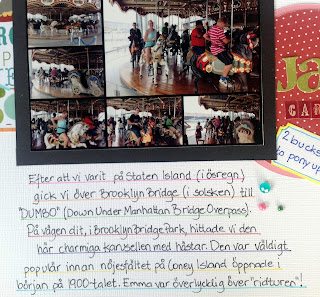 2 bucks
to pony up
Efter att vi varit på Staten Island (i ösregn)
gick vi över Brooklyn Bridge (i solsken) till
"DUMBO" (Down Under Manhattan Bridge Overpass).
På vägen dit, i Brooklyn Bridge Park, hittade vi den
här charmiga karusellen med hästar. Den var väldigt
populär innan nöjesfältet på Coney Island öppnade i
början på 1900-talet. Emma var överlycklig över "ridturen"!